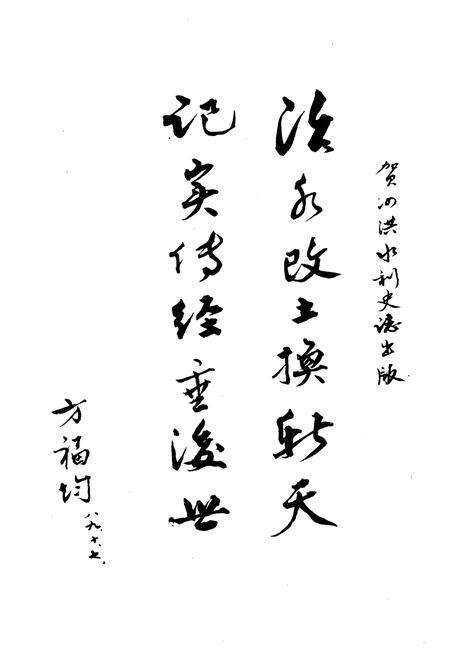 贺洪水利史志出版
治水改土换新天
记实传经垂后世
方福均
八九.十.七.